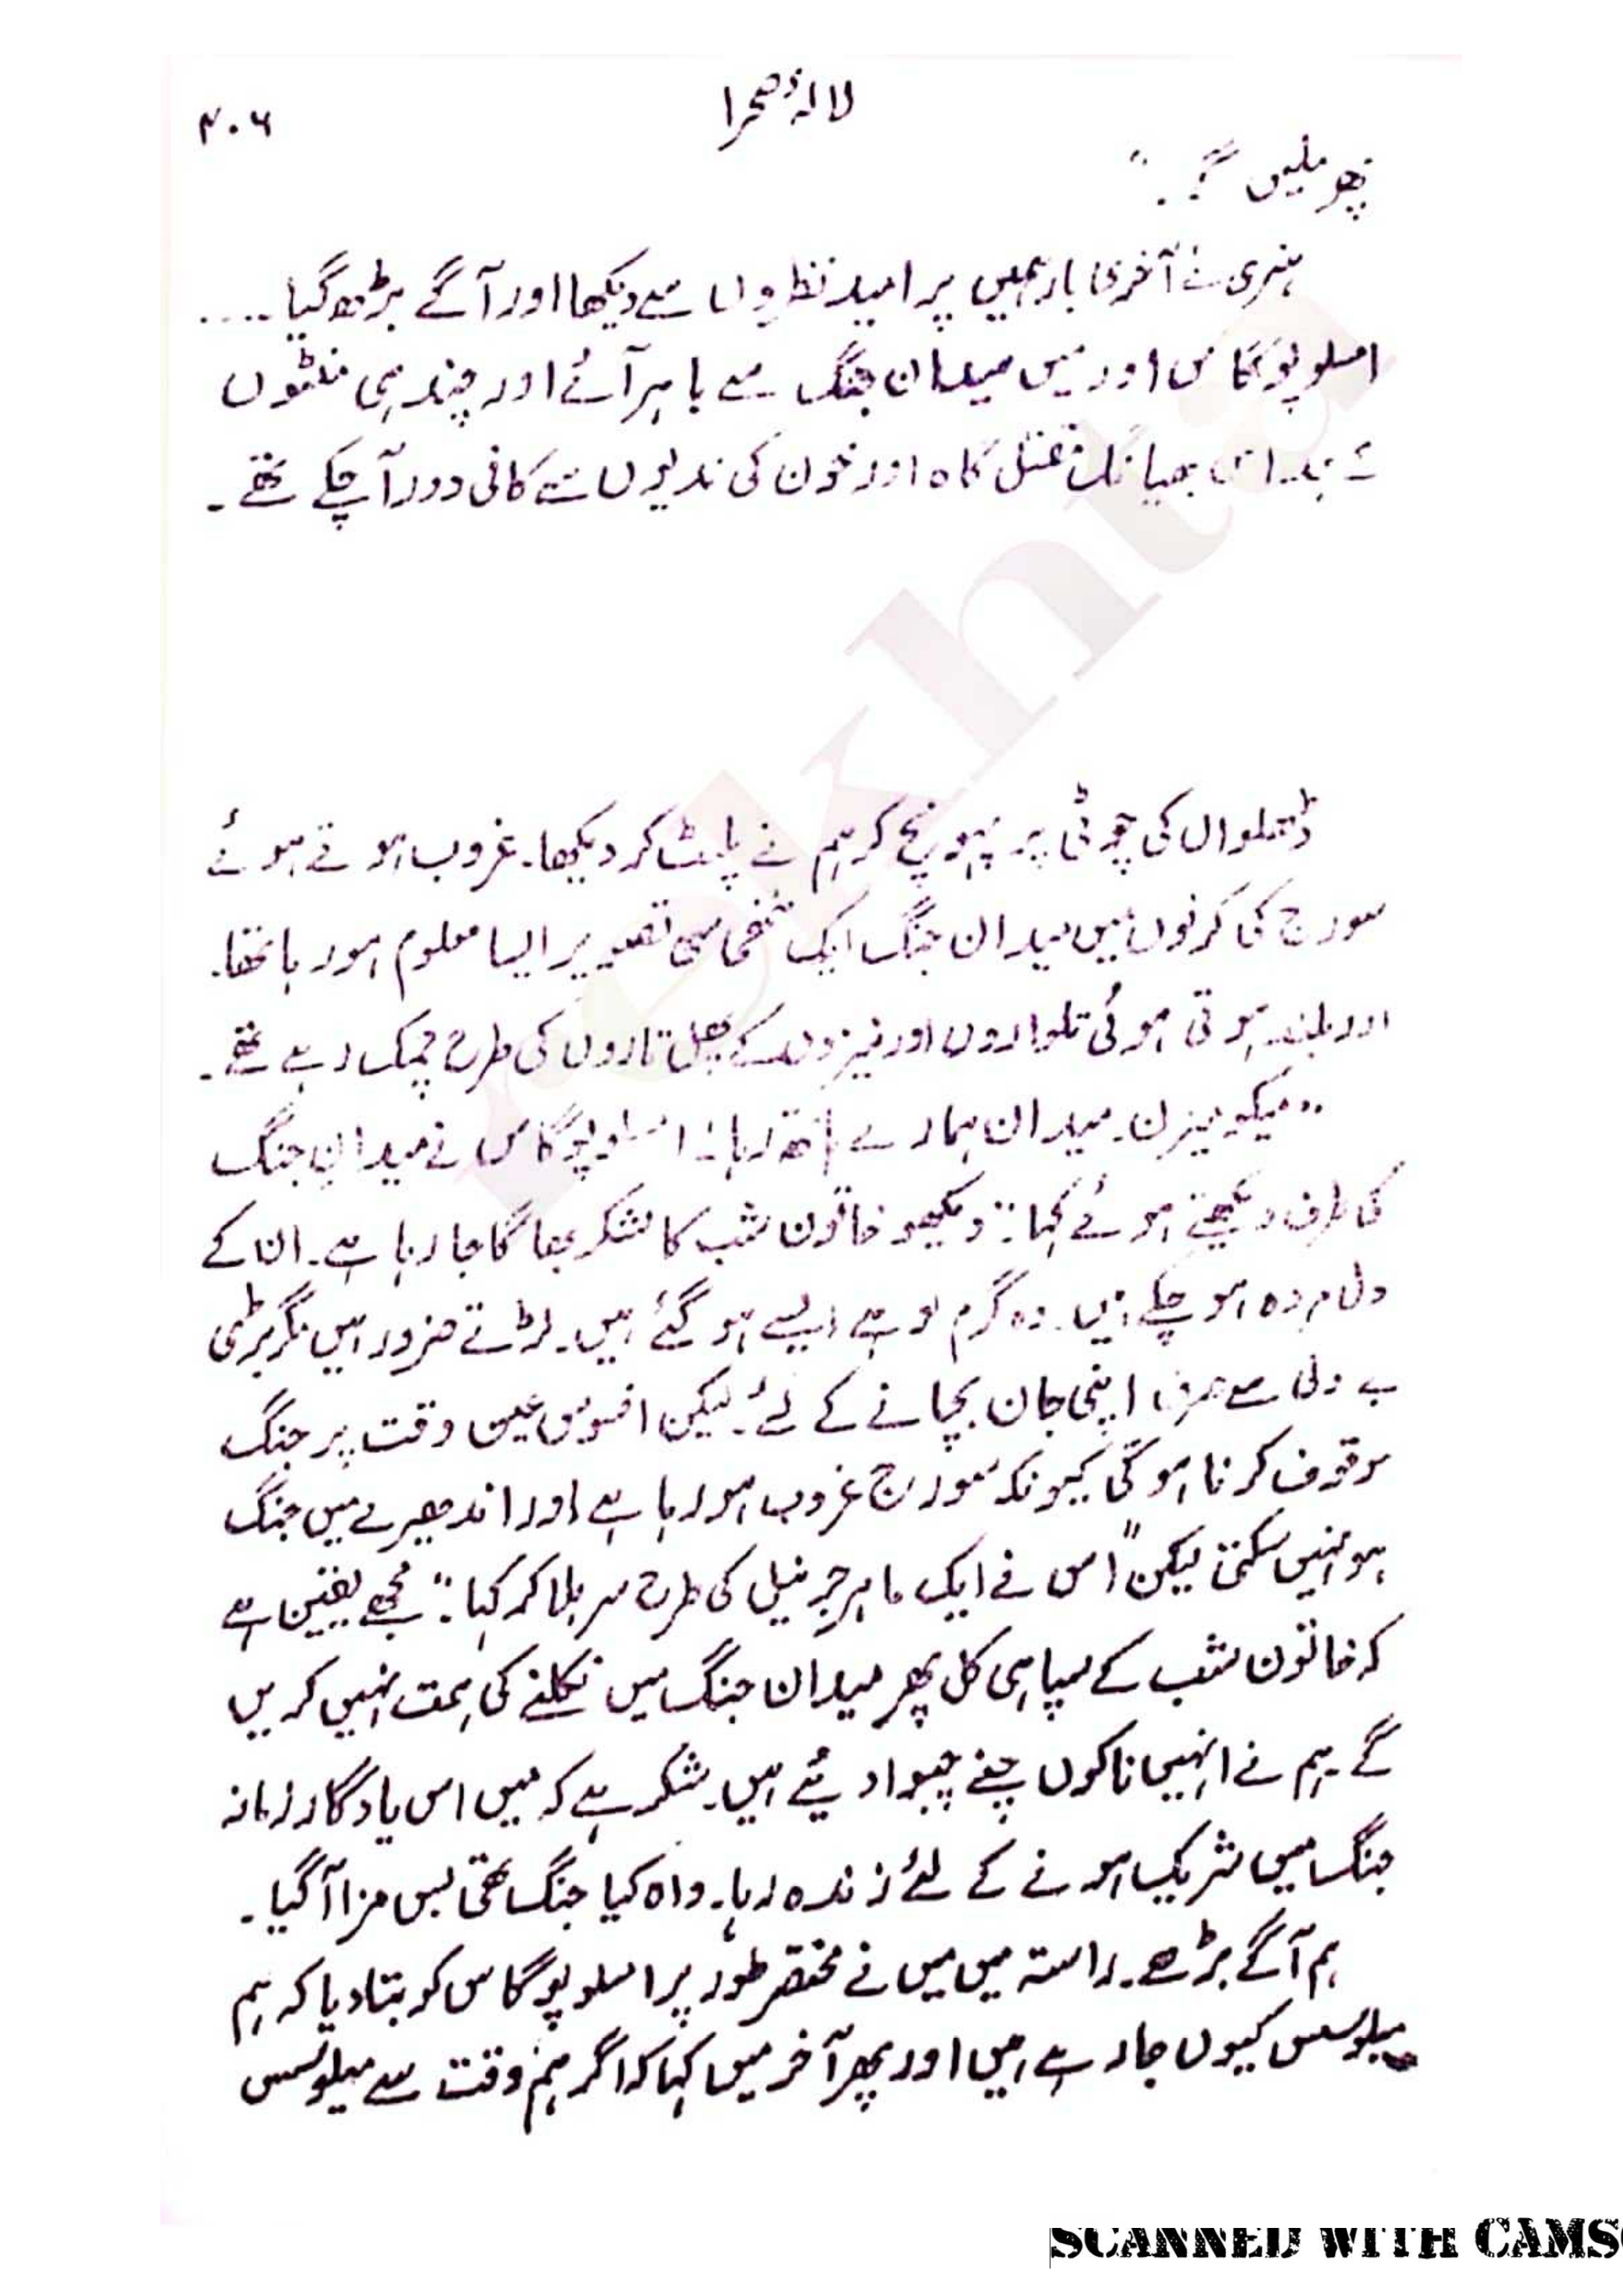 لالۂ صحرا
۴۰۶
پھر ملیں گے۔"
ہنری نے آخری بار ہمیں پر امید نظروں سے دیکھا اور آگے بڑھ گیا ....
امسلوپوگاس اور میں میدان جنگ سے باہر آئے اور چند ہی منٹوں
کے بعد اس بھیانک قتل گاہ اور خون کی ندیوں سے کافی دور آ چکے تھے۔
ڈھلوان کی چوٹی پر پہونچ کر ہم نے پلٹ کر دیکھا۔ غروب ہوتے ہوئے
سورج کی کرنوں میں میدان جنگ ایک ننھی سی تصویر ایسا معلوم ہو رہا تھا۔
اور بلند ہوتی ہوئی تلواروں اور نیزوں کے پھل تاروں کی طرح چمک رہے تھے۔
"میکومیزن۔ میدان ہمارے ہاتھ رہا۔" امسلوپوگاس نے میدان جنگ
کی طرف دیکھتے ہوئے کہا: "دیکھو خاتون شب کا لشکر بھاگا جا رہا ہے۔ ان کے
دل مردہ ہو چکے ہیں۔ وہ گرم لوہے ایسے ہو گئے ہیں۔ لڑتے ضرور ہیں مگر بڑی
بے دلی سے صرف اپنی جان بچانے کے لئے۔ لیکن افسوس عین وقت پر جنگ
موقوف کرنا ہو گی کیونکہ سورج غروب ہو رہا ہے اور اندھیرے میں جنگ
ہو نہیں سکتی لیکن" اس نے ایک ماہر جرنیل کی طرح سر ہلا کر کہا: "مجھے یقین ہے
کہ خاتون شب کے سپاہی کل پھر میدان جنگ میں نکلنے کی ہمت نہیں کریں
گے۔ ہم نے انہیں ناکوں چنے چبوا دیئے ہیں۔ شکر ہے کہ میں اس یادگار زمانہ
جنگ میں شریک ہونے کے لئے زندہ رہا۔ واہ کیا جنگ تھی بس مزا آ گیا۔
ہم آگے بڑھے۔ راستہ میں میں نے مختصر طور پر امسلوپوگاس کو بتا دیا کہ ہم
میلوسس کیوں جا رہے ہیں اور پھر آخر میں کہا کہ اگر ہم وقت سے میلوسس
rekhta
SCANNED WITH CAMS